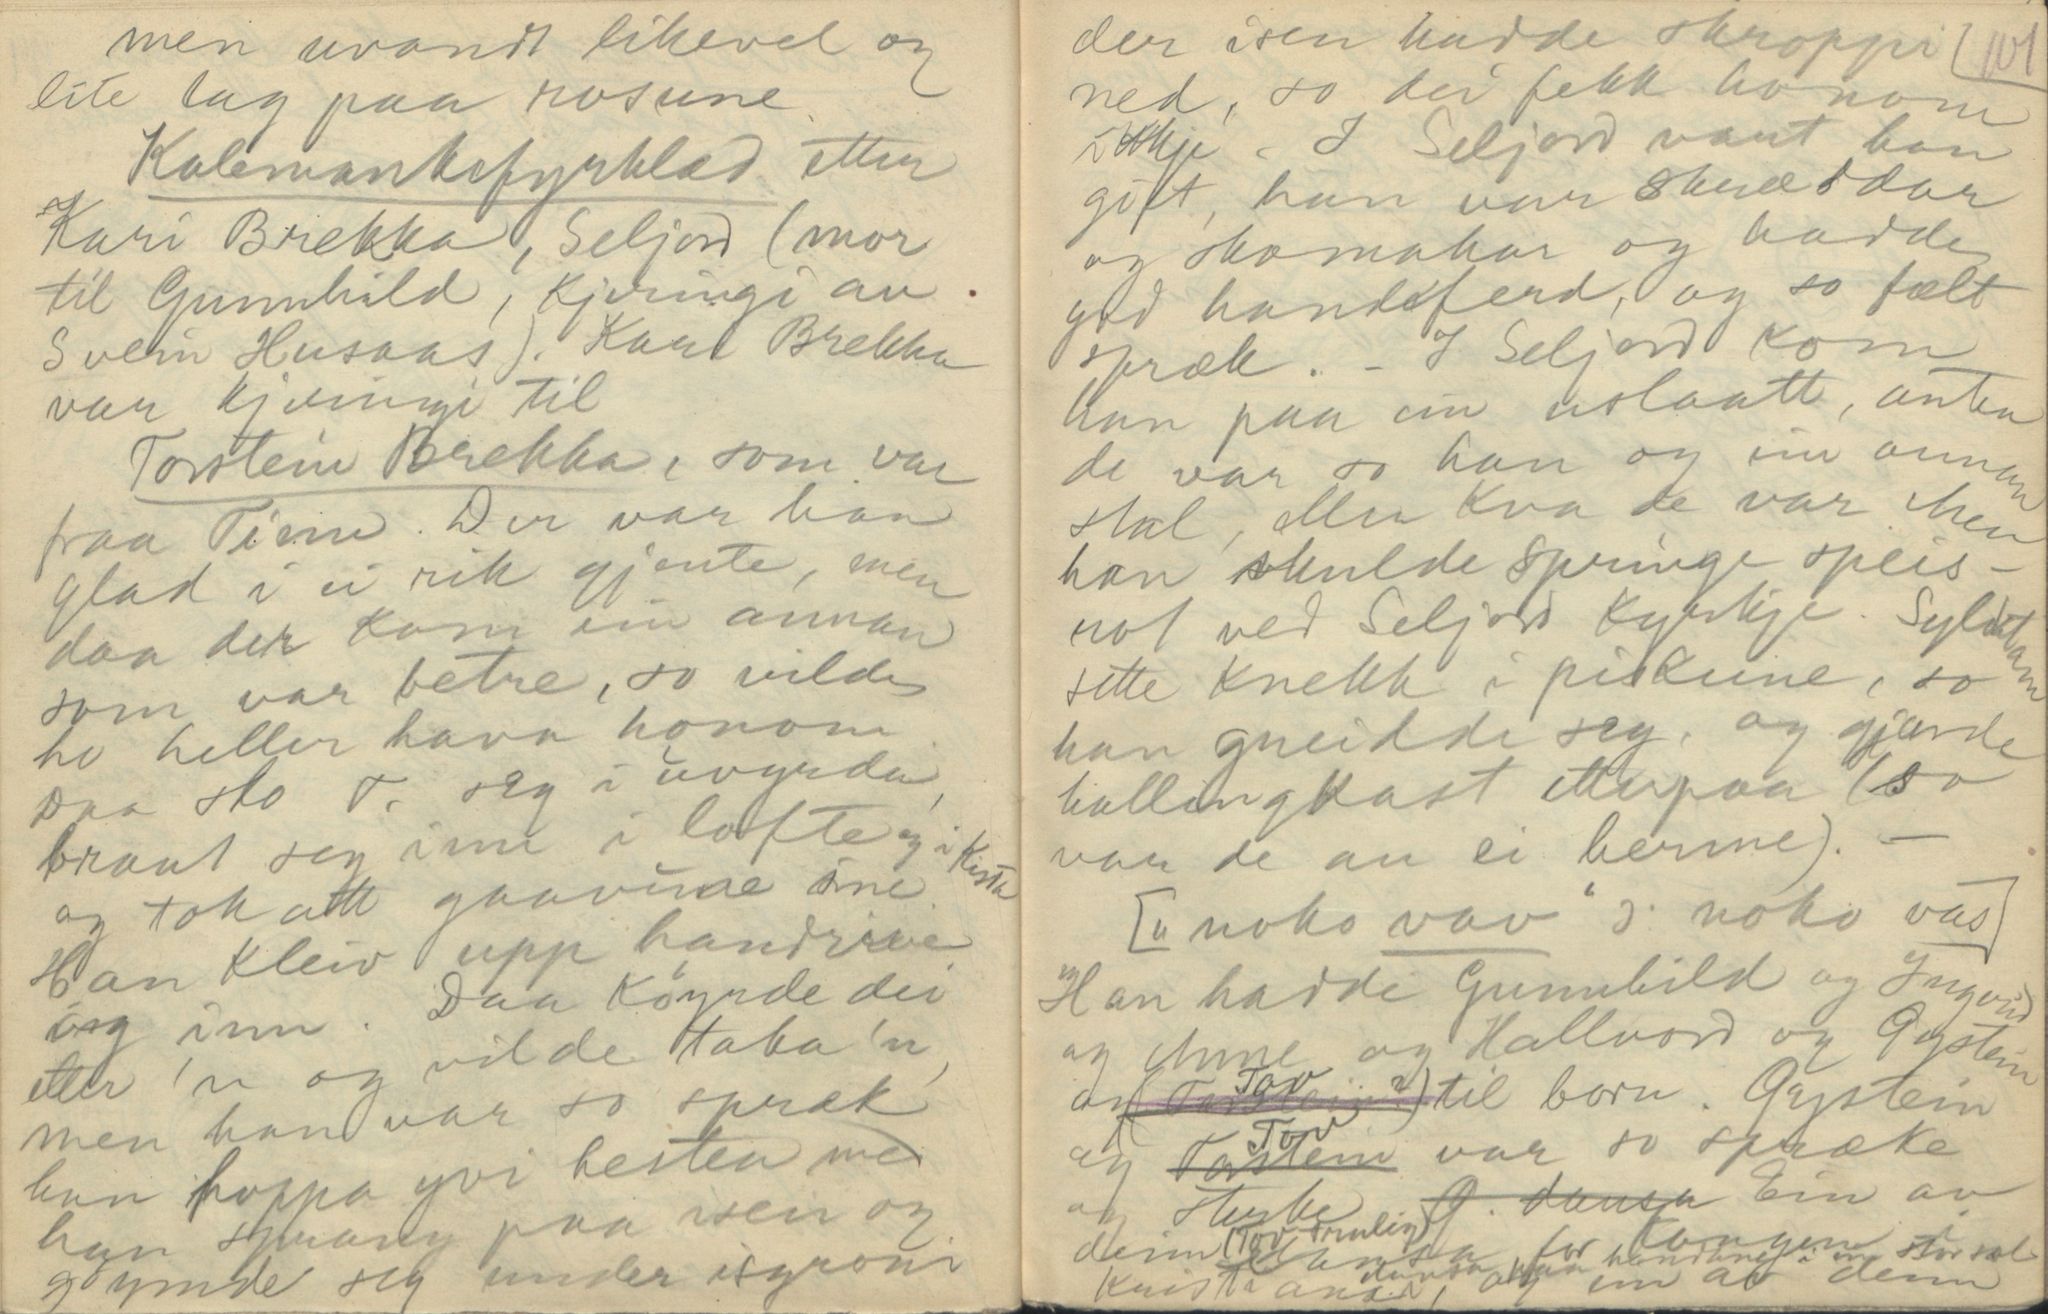 men uvandt likevel og
lite lag paa rosune
Kalemanksfyrklæd etter
Kari Brekka, Seljord (mor
til Gunnhild, kjeringi av
Svein Husaas). Kari Brekka
var kjeringi til
Torstein Brekka, som var
fraa Tinn. Der var han
glad i ei rik gjente, men
daa der kom ein annan
som var betre, so vilde
ho heller hava honom
Daa slo T. seg i uvyrda,
braut seg inn i lofte og i kista
og tok att gaavune sine.
Han kleiv upp handrive
og inn. Daa køyrde dei
etter 'n og vilde taka 'n,
men han var so spræk
han hoppa yvi hesten me
han sprang paa isen og
gøymde seg under isgroni
der isen hadde skroppi 101
ned, so dei fekk honom
ikkje. I Seljord vart han
gift, han var skræddar
og skomakar og hadde
god handeferd, og so fælt
spræk. - I Seljord kom
han paa ein uslaatt, anten
de var so han og ein annan
stal, eller kva de var. Men
han skulde springe speis-
rot ved Seljord kyrkje. Syldistam
sette knekk i piskune, so
han greidde seg, og gjorde
hallingkast etterpaa (so
var de au ei herme). -
["noko vav" ɔ: noko vas]
Han hadde Gunnhild og Ingerid
og Anne og Hallvord og Øystein
og (Torstein?) Tov til born. Øystein
og Torstein Tov var so spræke
og sterke Ø. dansa Ein av
deim (Tov truleg) dansa for Kongen i
Kristiania, dansa paa hendane i ein stor sal
og ein av deim